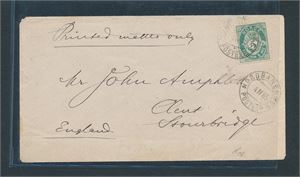 Printed matter only
5
Mr John Amphlett
Clent
Stourbridge
England